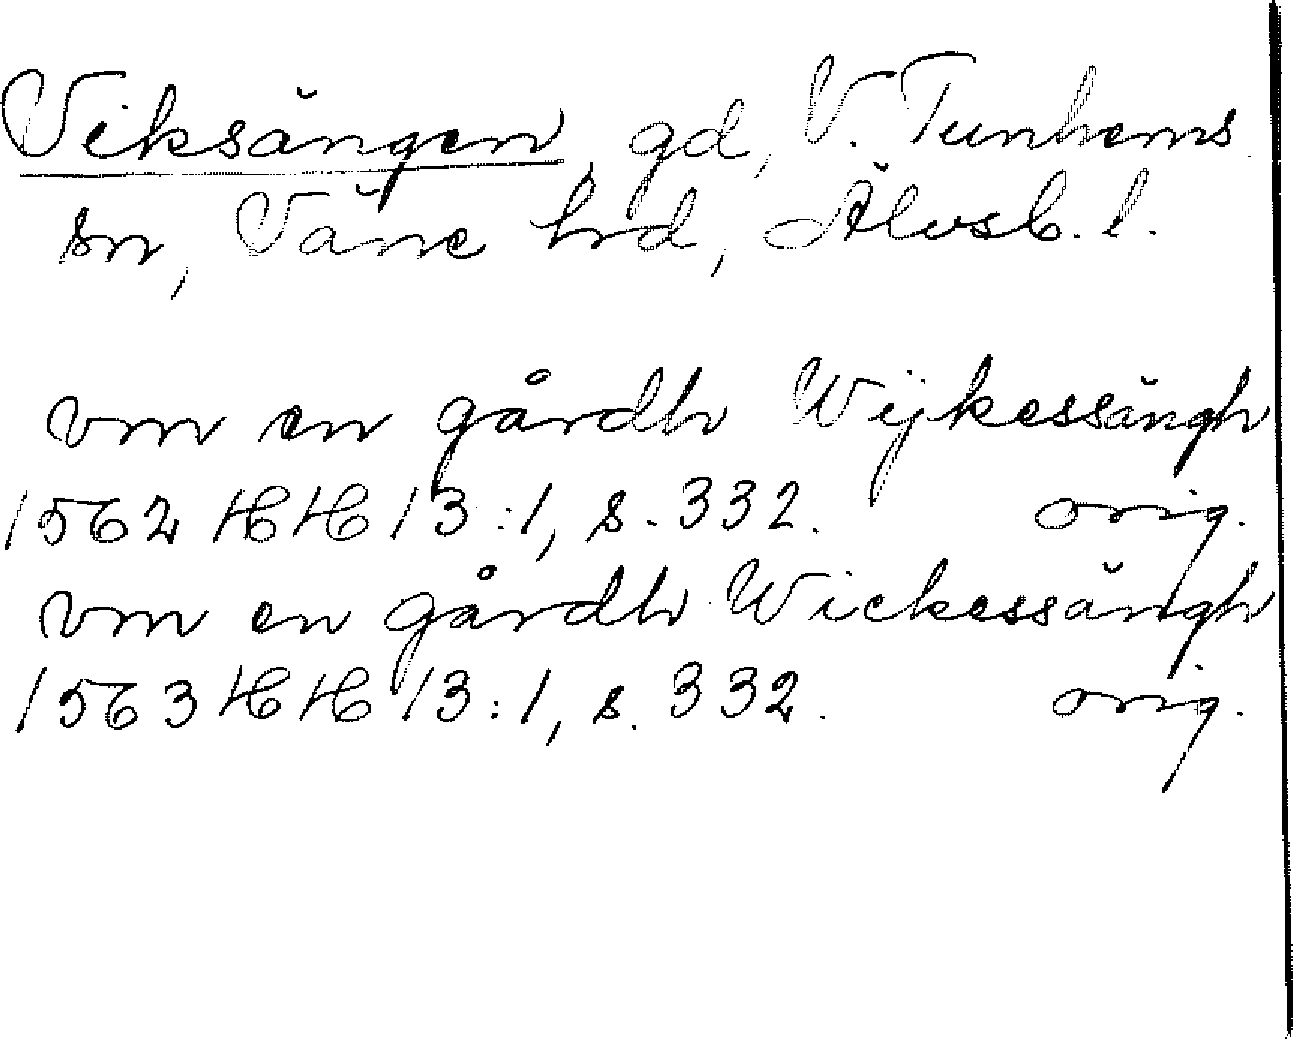 Viksängen, gd, V. Tunhems
sn, Väne hrd, Älvsb. l.
vm en gårdh Wijkessängh
1562 HH 13:1, s. 332. orig.
vm en gårdh Wickessängh
1563 HH 13:1, s. 332. orig.